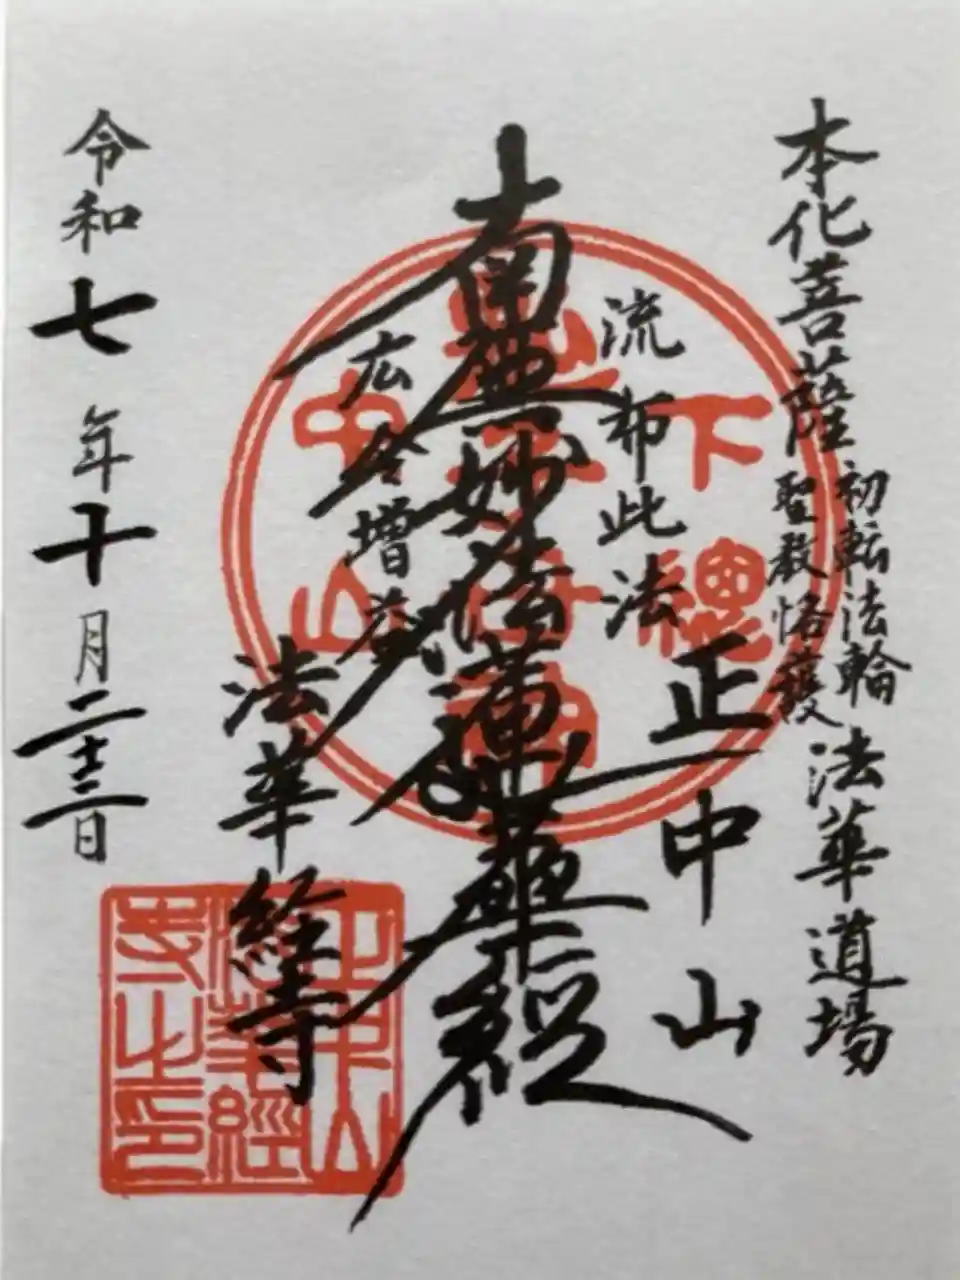 本化菩薩
初転法輪
聖教格護
法華道場
正中山
流布此法
南無妙法蓮華経
広令増益
法華経寺
令和七年十月二十三日
下總
中山
正中山
法華經
寺之印